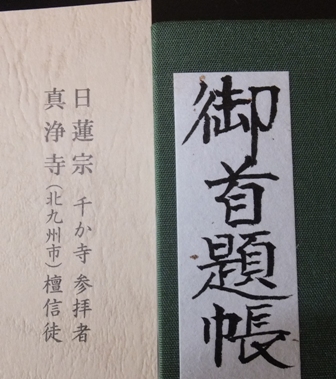 御首題帳
日蓮宗 千か寺 参拝者
真浄寺(北九州市)檀信徒